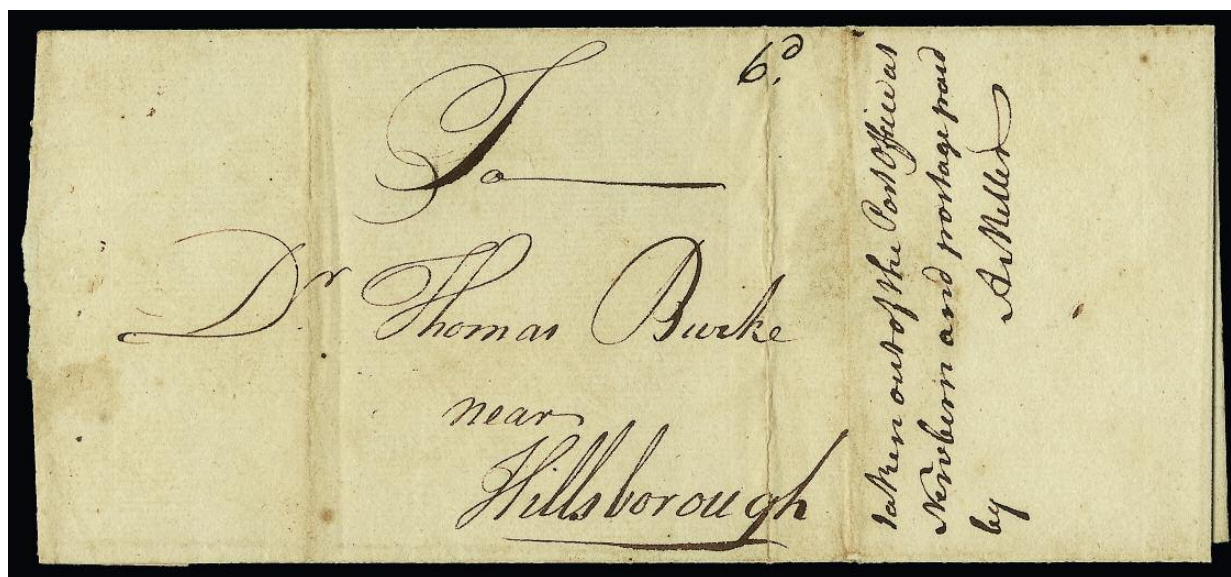 6.d
To
Dr Thomas Burke
near
Hillsborough
taken out of the Post Office at
Newbern and postage paid
by